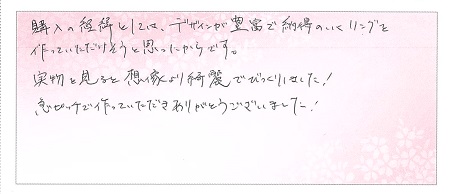 購入の経緯としては、デザインが豊富で納得のいくリングを
作っていただけそうと思ったからです。
実物を見ると想像より綺麗でびっくりしました!
急ピッチで作っていただきありがとうございました!